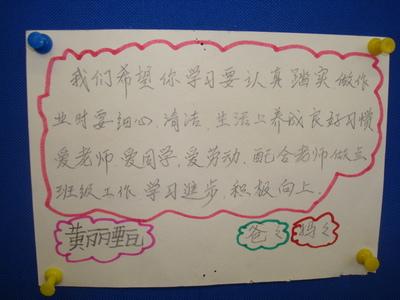 我们希望你学习要认真踏实做作
业时要细心,清洁,生活上养成良好习惯
爱老师,爱同学,爱劳动,配合老师做点
班级工作,学习进步,积极向上.
黄丽
爸々 妈々